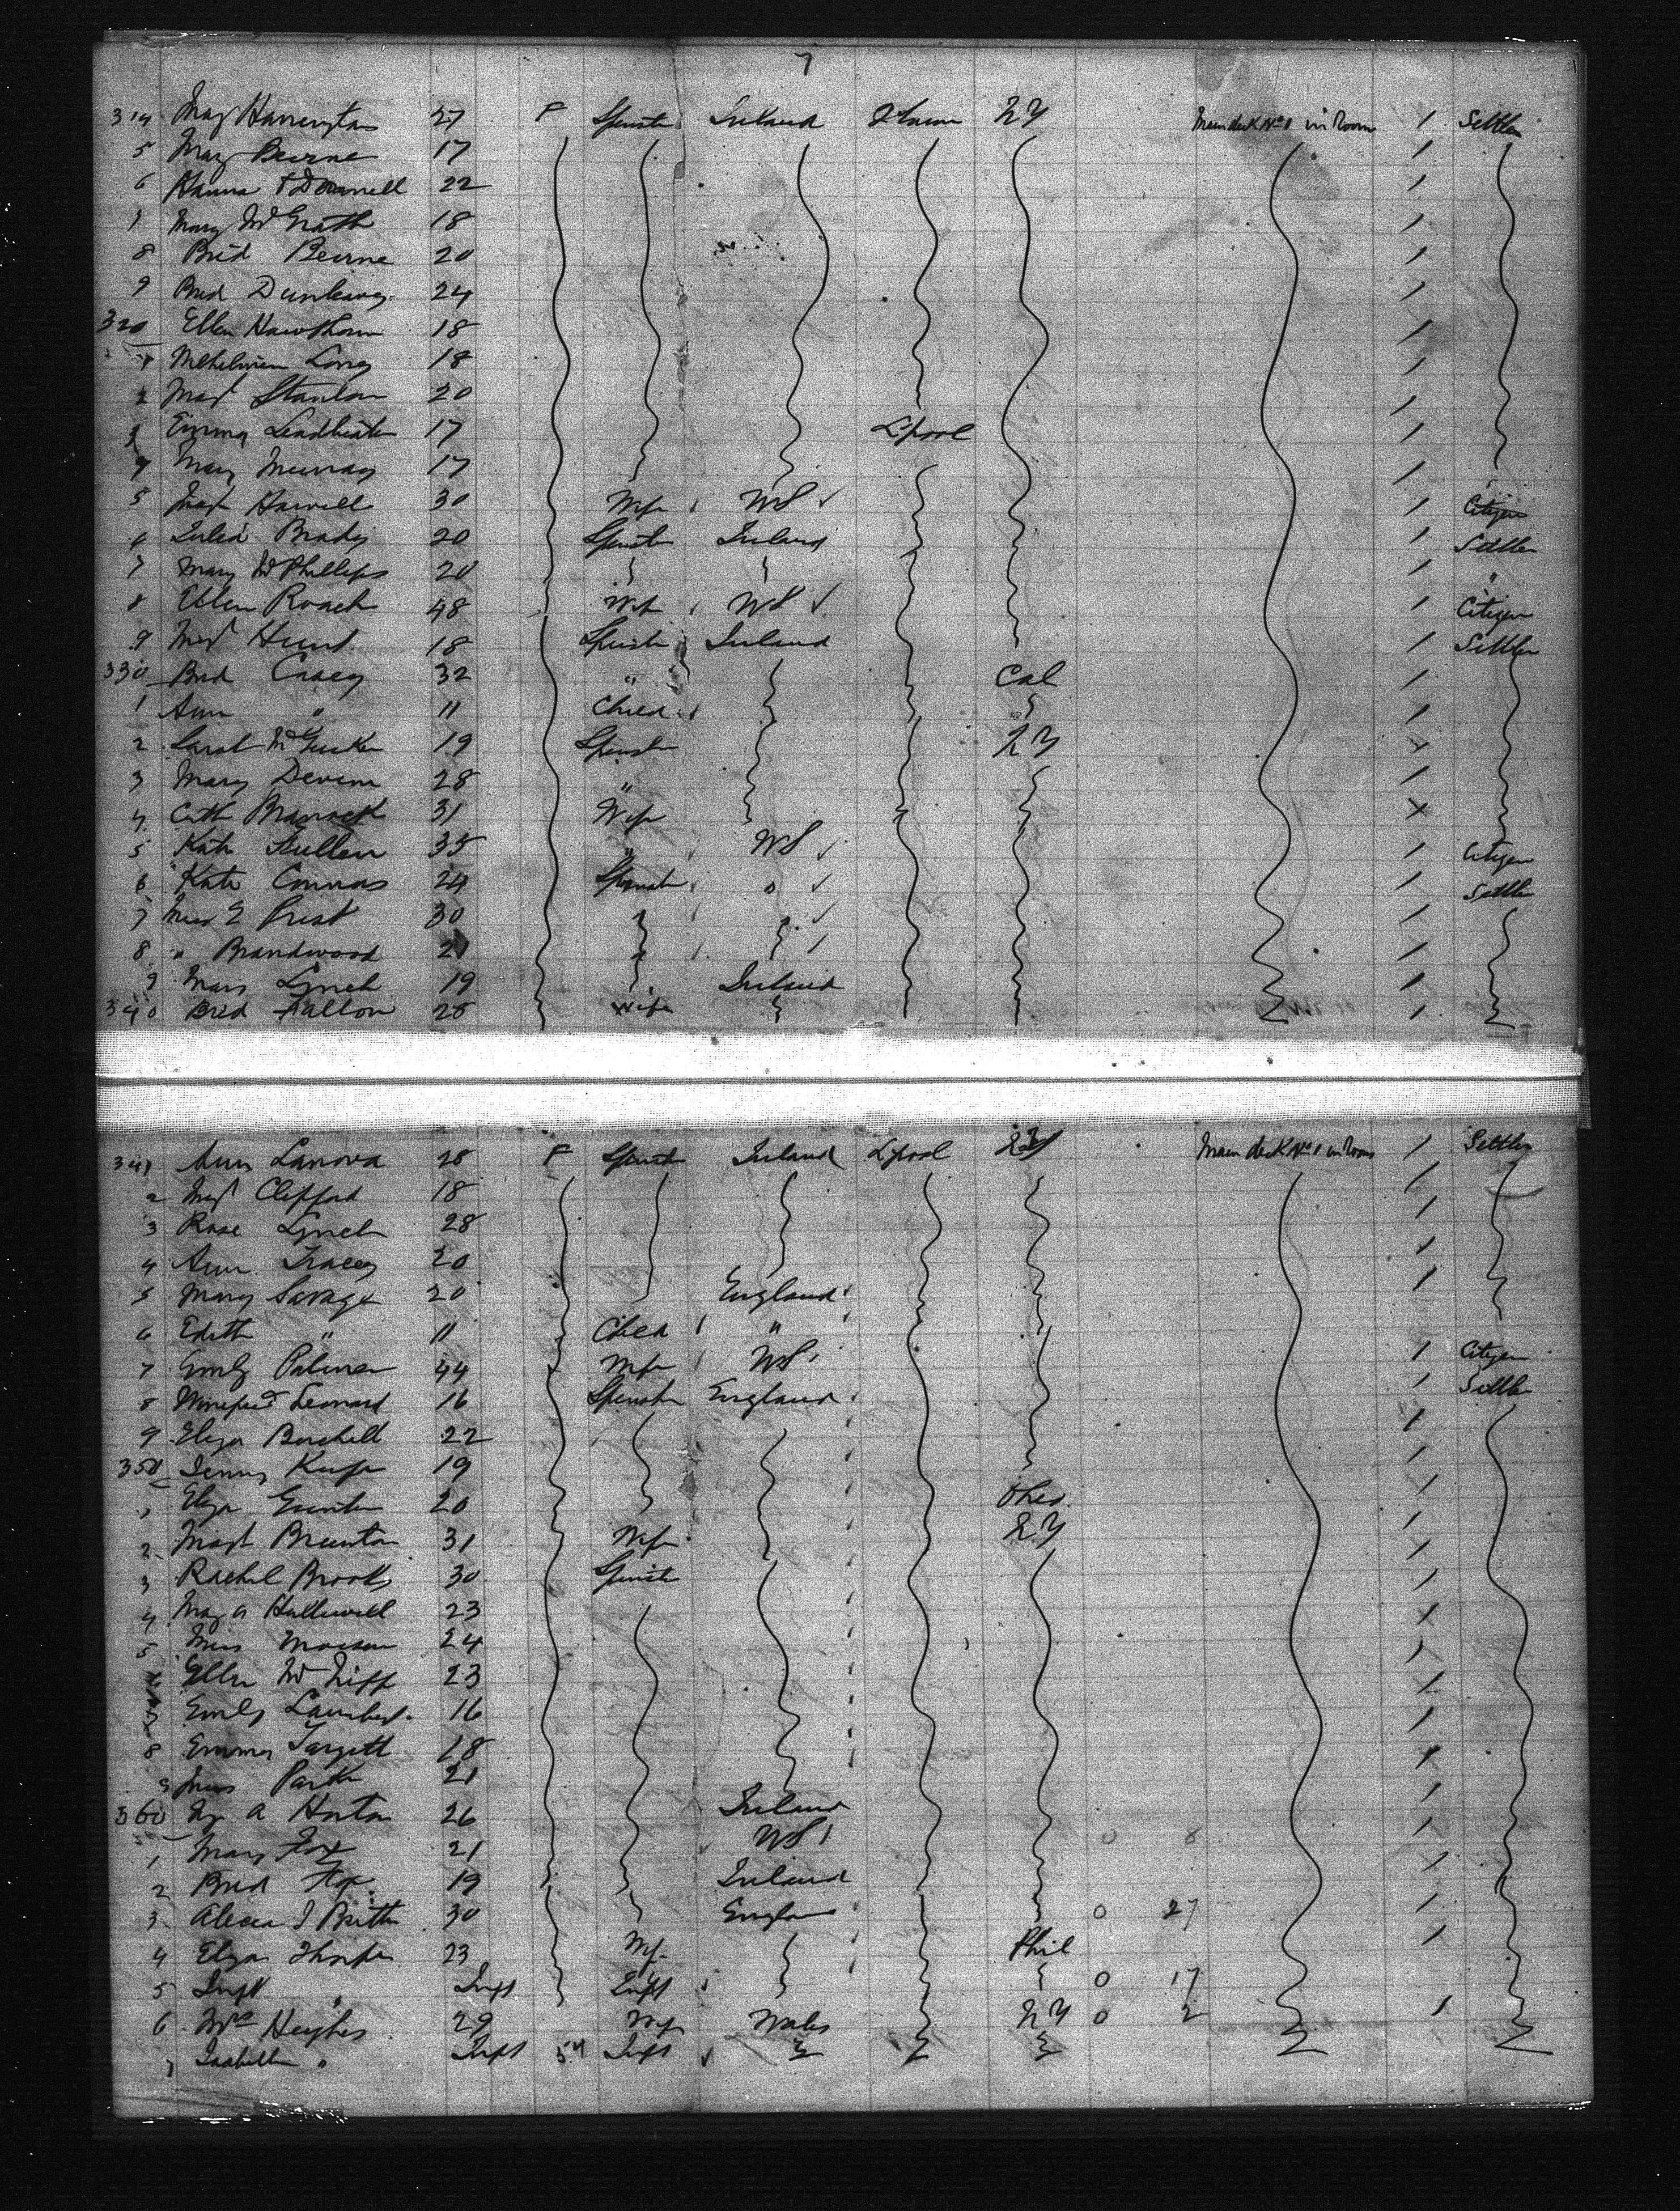 7
314 Mary Harrington 27 F Spinster Ireland N Y Main deck No 1 in Room 1 Settler
5 Mary Beirne 17 1
6 Hanna O'Donnell 22 1
7 Mary McGrath 18 1
8 Brid Beirne 20 1
9 Brid Dunleavy 24 1
320 Ellen Hawthorn 18 1
1 Long 18 1
2 Margt Stanton 20 1
3 Emma Leadbeater 17 L'pool 1
4 Mary Murray 17 1
5 30 Wife US ✓ 1 Citizen
6 Brady 20 Spinster Ireland 1 Settler
7 Mary McPhillips 20 1 "
8 Ellen Roach 48 Wife US ✓ 1 Citizen
9 Margt Hunt 18 Spinster Ireland 1 Settler
330 Brid Casey 32 " Cal 1
1 Ann " 11 Child 1
2 Sarah McGucken 19 Spinster N Y x
3 Mary Devine 28 " 1
4 Cath 31 Wife x
5 Kate Cullen 35 " US ✓ 1 Citizen
6 Kate Connors 24 Spinster " ✓ 1 Settler
7 Miss E Prest 30 ✓ 1
8 " Brandwood 21 1
9 Mary Lynch 19 Ireland 1
340 Brid Fallon 28 Wife 1
341 Ann Lanova 28 F Spinster Ireland L'pool N Y Main deck No 1 in Room 1 Settler
2 Margt Clifford 18 1
3 Rose Lynch 28 1
4 Ann Tracey 20 1
5 Mary Savage 20 England 1
6 Edith " 11 Child "
7 Emily Palmer 44 Wife US 1 Citizen
8 Winefred Leonard 16 Spinster England 1 Settler
9 Eliza Burchell 22 1
350 Jenny 19 1
1 Eliza 20 1
2 Margt Brunton 31 Wife N Y 1
3 Rachel Brooks 30 Spinster 1
4 Mary A Halliwell 23 x
5 Miss 24 1
6 Ellen 23 1
7 Emily Lambert 16 1
8 Emma Targett 18 1
9 Miss Parker 21 1
360 My A Horton 26 Ireland 1
1 Mary Fox 21 US 0 8 1
2 Brid Fox 19 Ireland 1
3 Alicia J Britton 30 England 0 27 1
4 Eliza Thorpe 23 Wife Phil 1
5 Inft " Inft Inft 0 17
6 Mrs Hughes 29 Wife Wales N Y 0 2 1
7 Isabella " Inft 54 Inft ✓